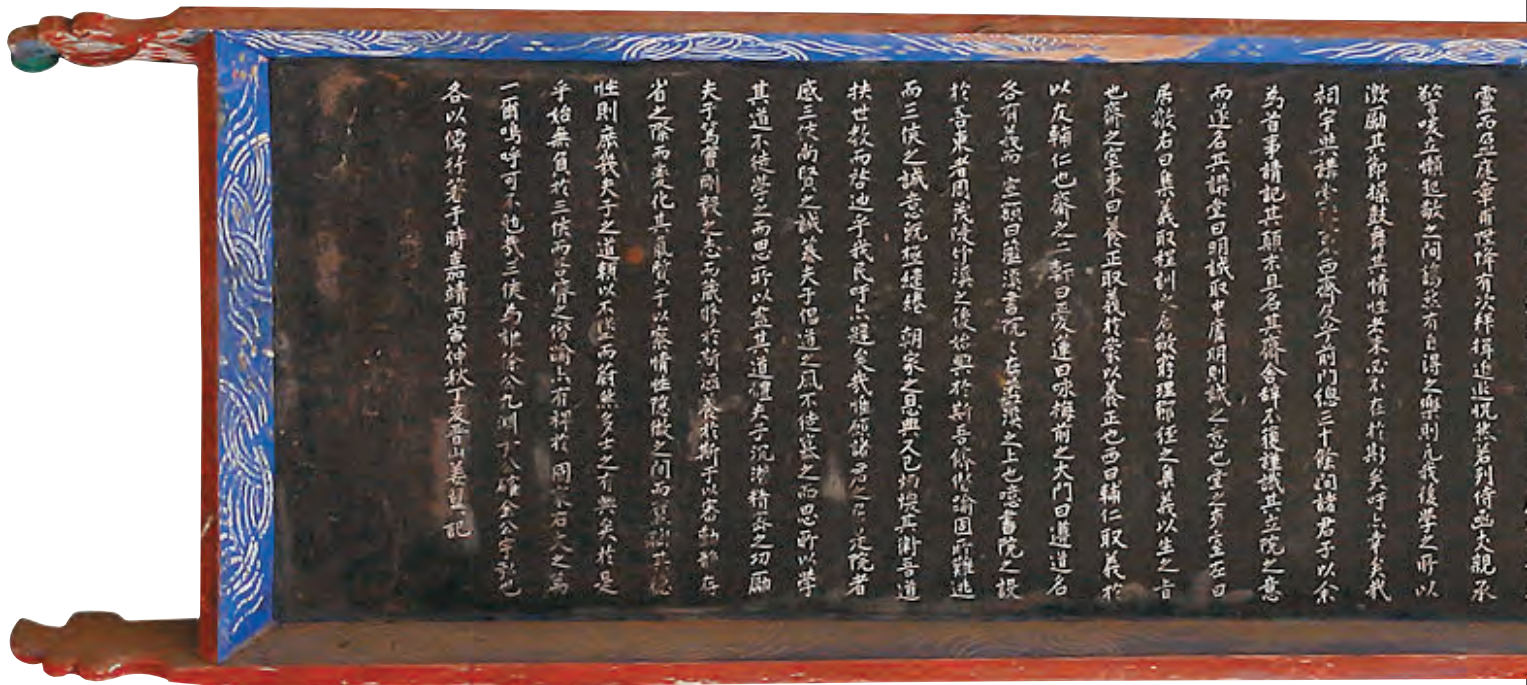 靈而昷庭章甫陞降有次釋揖進退怳然若列侍函丈親承
警咳立懶起敬之間謁然有自得之樂則凡我後學之所以
激勵其節操鼓舞其情性者未必不在於斯矣吁亦幸矣我
祠宇與講堂東西齋及乎前門總三十餘間諸君子以余
為首事請記其顚末且名其齋舍辭不獲謹識其立院之意
而遂名其講堂曰明誠取中庸明則誠之意也堂之旁室左曰
居敬右曰集義取程訓之居敬窮理鄒經之集義以生之旨
也齋之室東曰養正取義於蒙以養正也西曰輔仁取義於
以友輔仁也齋之二軒曰愛蓮曰咏梅前之大門曰遵道道名
各有義而定額曰藍溪書院ㄑ在藍溪之上也噫書院之設
於吾東者周茂陵竹溪之後始興於斯吾儕僭論固所難逃
而三侯之誠意旣極繾綣朝家之息與人已切恨其衛吾道
扶世敎而啓迪乎我民吁亦韙矣哉惟願諸君之居是院者
感三侯尚賢之誠慕夫子倡道之風不徒慕之而思所以學
其道不徒學之而思所以盡其道體夫子沉潛精密之功勵
夫子篤實剛毅之志而藏修於斯涵養於斯于以審動靜存
省之際而變化其氣質于以察情性隱微之間而冀副其德
性則庶幾夫子之道賴以不墜而蔚然多士之有興矣於是
乎始無負於三侯而吾儕之僭論亦有裨於國家右文之萬
一爾嗚呼可不勉哉三侯為誰徐公九淵尹公確金公宇弘也
各以儒行著于時嘉靖丙寅仲秋丁亥晉山姜翼記